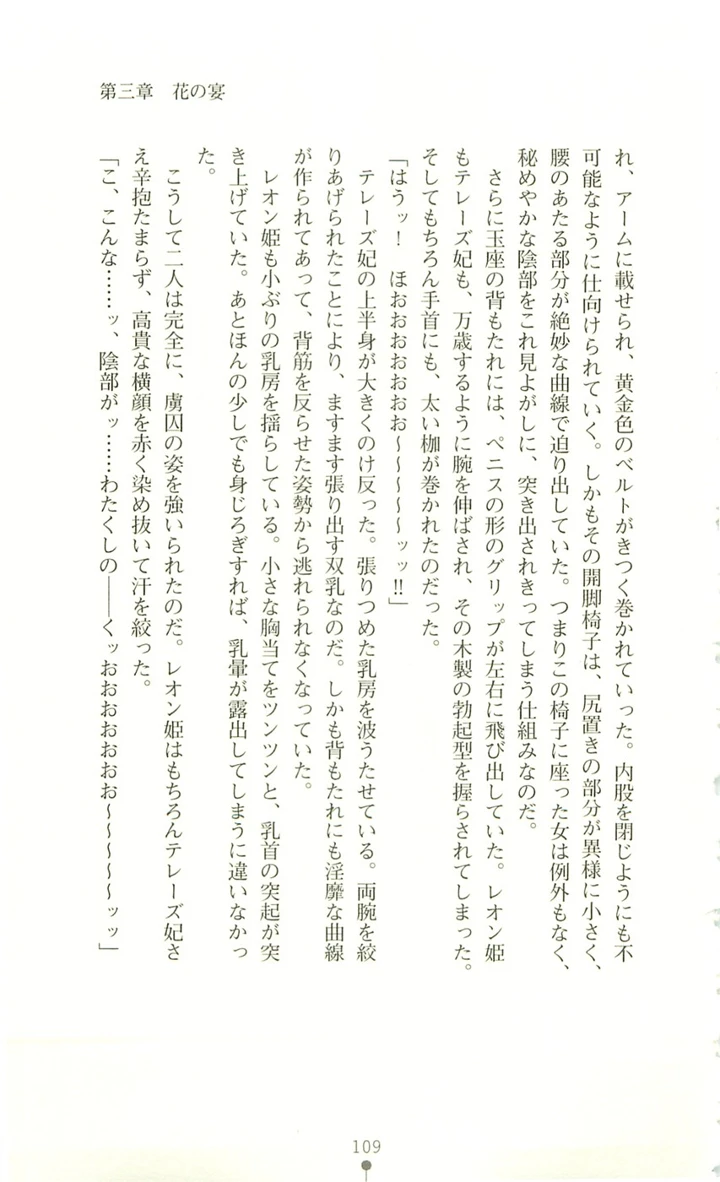 第三章　花の宴
れ、アームに載せられ、黄金色のベルトがきつく巻かれていった。内股を閉じようにも不
可能なように仕向けられていく。しかもその開脚椅子は、尻置きの部分が異様に小さく、
腰のあたる部分が絶妙な曲線で迫り出していた。つまりこの椅子に座った女は例外もなく、
秘めやかな陰部をこれ見よがしに、突き出されきってしまう仕組みなのだ。
　さらに玉座の背もたれには、ペニスの形のグリップが左右に飛び出していた。レオン姫
もテレーズ妃も、万歳するように腕を伸ばされ、その木製の勃起型を握らされてしまった。
そしてもちろん手首にも、太い枷が巻かれたのだった。
「はうッ！　ほおおおおおお～～～～～ッッ!!」
　テレーズ妃の上半身が大きくのけ反った。張りつめた乳房を波うたせている。両腕を絞
りあげられたことにより、ますます張り出す双乳なのだ。しかも背もたれにも淫靡な曲線
が作られてあって、背筋を反らせた姿勢から逃れられなくなっていた。
　レオン姫も小ぶりの乳房を揺らしている。小さな胸当てをツンツンと、乳首の突起が突
き上げていた。あとほんの少しでも身じろぎすれば、乳暈が露出してしまうに違いなかっ
た。
　こうして二人は完全に、虜囚の姿を強いられたのだ。レオン姫はもちろんテレーズ妃さ
え辛抱たまらず、高貴な横顔を赤く染め抜いて汗を絞った。
「こ、こんな……ッ、陰部がッ……わたくしの――くッおおおおおおお～～～～～ッッ」
109